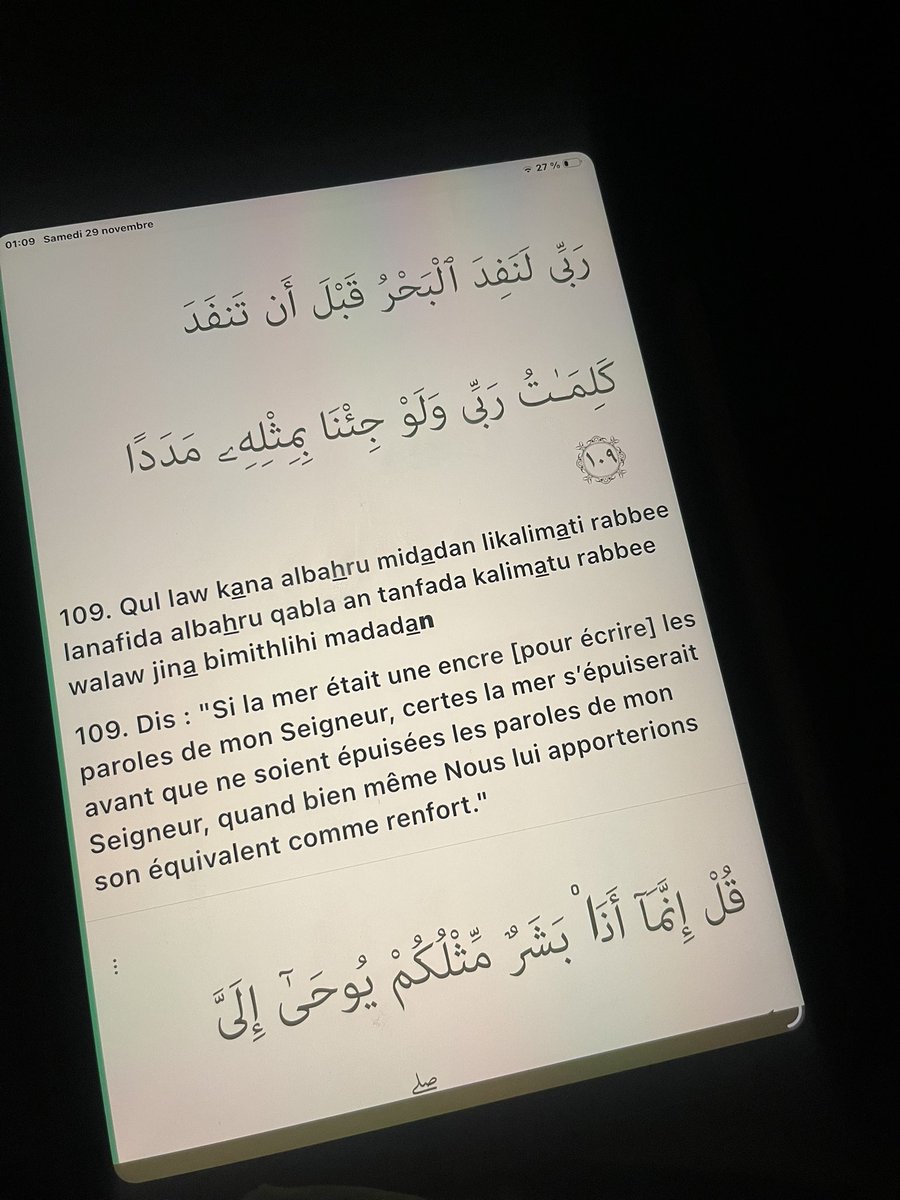 01:09 Samedi 29 novembre
27 %
رَبِّى لَنَفِدَ ٱلْبَحْرُ قَبْلَ أَن تَنفَدَ
كَلِمَـٰتُ رَبِّى وَلَوْ جِئْنَا بِمِثْلِهِۦ مَدَدًا
١٠٩
109. Qul law kana albahru midadan likalimati rabbee
lanafida albahru qabla an tanfada kalimatu rabbee
walaw jina bimithlihi madadan
109. Dis : "Si la mer était une encre [pour écrire] les
paroles de mon Seigneur, certes la mer s'épuiserait
avant que ne soient épuisées les paroles de mon
Seigneur, quand bien même Nous lui apporterions
son équivalent comme renfort."
قُلْ إِنَّمَآ أَنَا۠ بَشَرٌ مِّثْلُكُمْ يُوحَىٰٓ إِلَىَّ
صلے